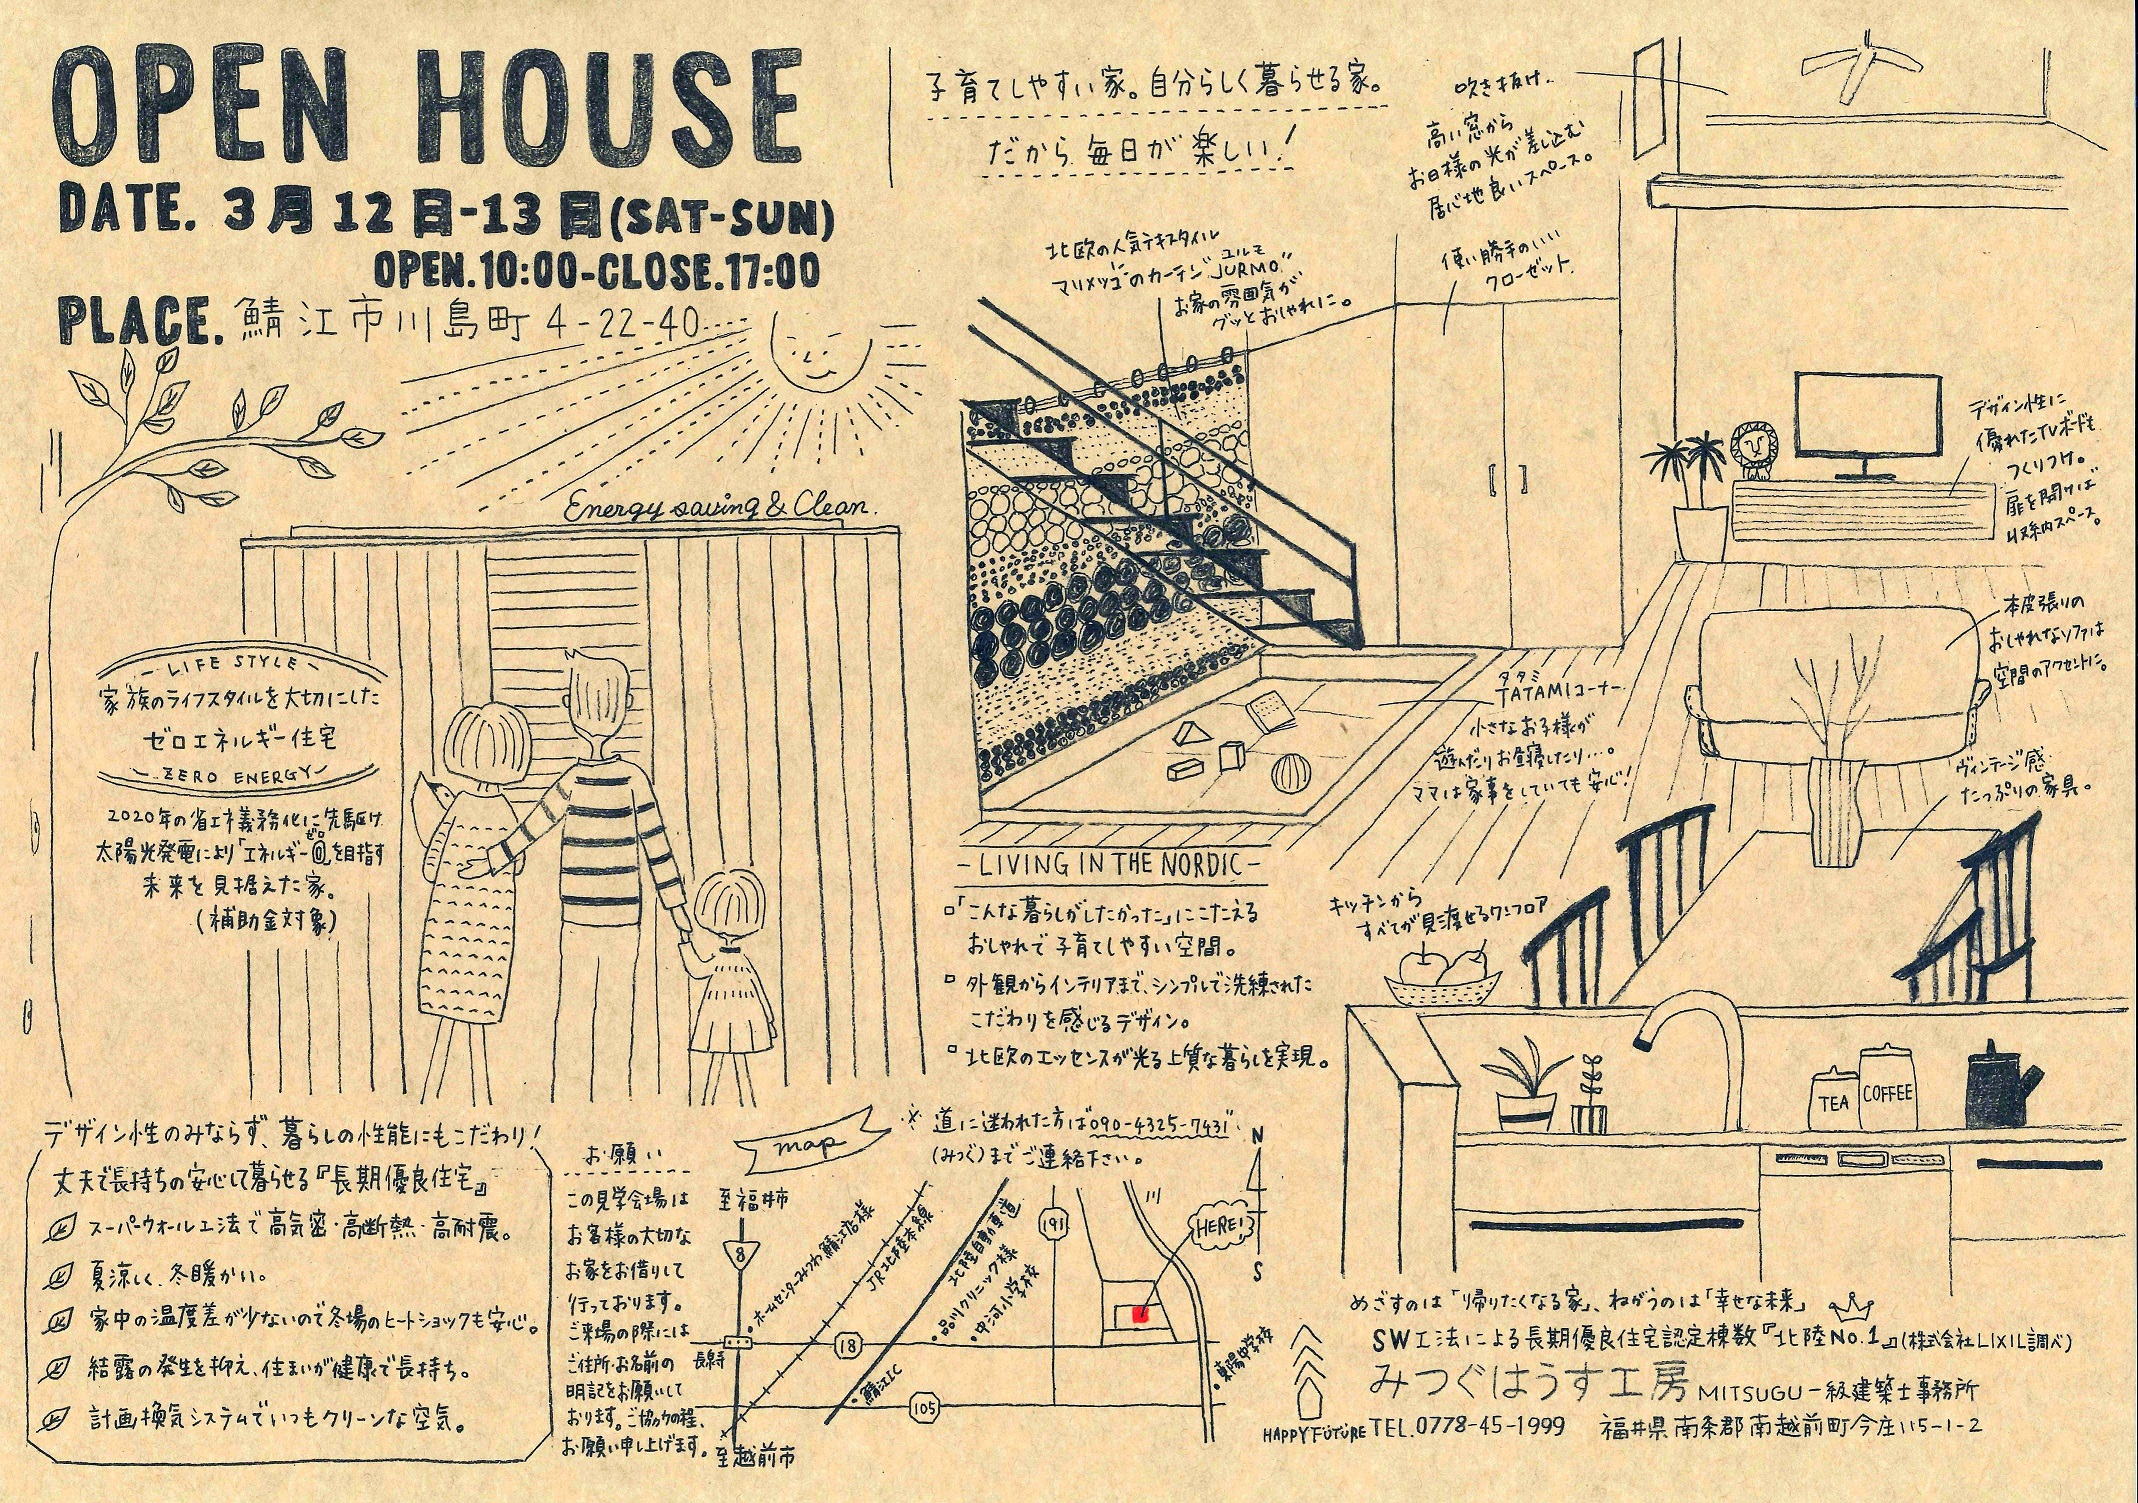 OPEN HOUSE
DATE. 3月12日-13日(SAT-SUN)
OPEN.10:00-CLOSE.17:00
PLACE. 鯖江市川島町 4-22-40
Energy saving & Clean.
LIFE STYLE
家族のライフスタイルを大切にした
ゼロエネルギー住宅
ZERO ENERGY
2020年の省エネ義務化に先駆け
太陽光発電により「エネルギー0ゼロ」を目指す
未来を見据えた家。
(補助金対象)
子育てしやすい家。自分らしく暮らせる家。
だから毎日が楽しい!
吹き抜け.
高い窓から
お日様の光が差し込む
居心地良いスペース。
北欧の人気テキスタイル
マリメッコのカーテン"JURMOユルモ"
お家の雰囲気が
グッとおしゃれに。
使い勝手のいい
クローゼット.
デザイン性に
優れたTVボードも
つくりつけ。
扉を開けば
収納スペース。
本皮張りの
おしゃれなソファは
空間のアクセントに。
タタミ
TATAMIコーナー
小さなお子様が
遊んだりお昼寝したり…。
ママは家事をしていても安心!
ヴィンテージ感
たっぷりの家具。
キッチンから
すべてが見渡せるワンフロア
TEA
COFFEE
- LIVING IN THE NORDIC -
「こんな暮らしがしたかった」にこたえる
おしゃれで子育てしやすい空間。
外観からインテリアまで、シンプルで洗練された
こだわりを感じるデザイン。
北欧のエッセンスが光る上質な暮らしを実現。
デザイン性のみならず、暮らしの性能にもこだわり!
丈夫で長持ちの安心して暮らせる『長期優良住宅』
スーパーウォール工法で高気密・高断熱・高耐震。
夏涼しく、冬暖かい。
家中の温度差が少ないので冬場のヒートショックも安心。
結露の発生を抑え、住まいが健康で長持ち。
計画換気システムでいつもクリーンな空気。
お願い
この見学会場は
お客様の大切な
お家をお借りして
行っております。
ご来場の際には
ご住所・お名前の
明記をお願いして
おります。ご協力の程、
お願い申し上げます。
map
※ 道に迷われた方は090-4325-7431
(みつぐ)までご連絡下さい。
至福井市
8
ホームセンターみつわ鯖江店様
JR北陸本線
北陸自動車道
品川クリニック様
中河小学校
191
川
HERE!
N
S
長泉寺
18
鯖江IC
105
東陽中学校
至越前市
HAPPY FUTURE
めざすのは「帰りたくなる家」、ねがうのは「幸せな未来」
SW工法による長期優良住宅認定棟数『北陸No.1』(株式会社LIXIL調べ)
みつぐはうす工房 MITSUGU一級建築士事務所
TEL.0778-45-1999 福井県南条郡南越前町今庄115-1-2